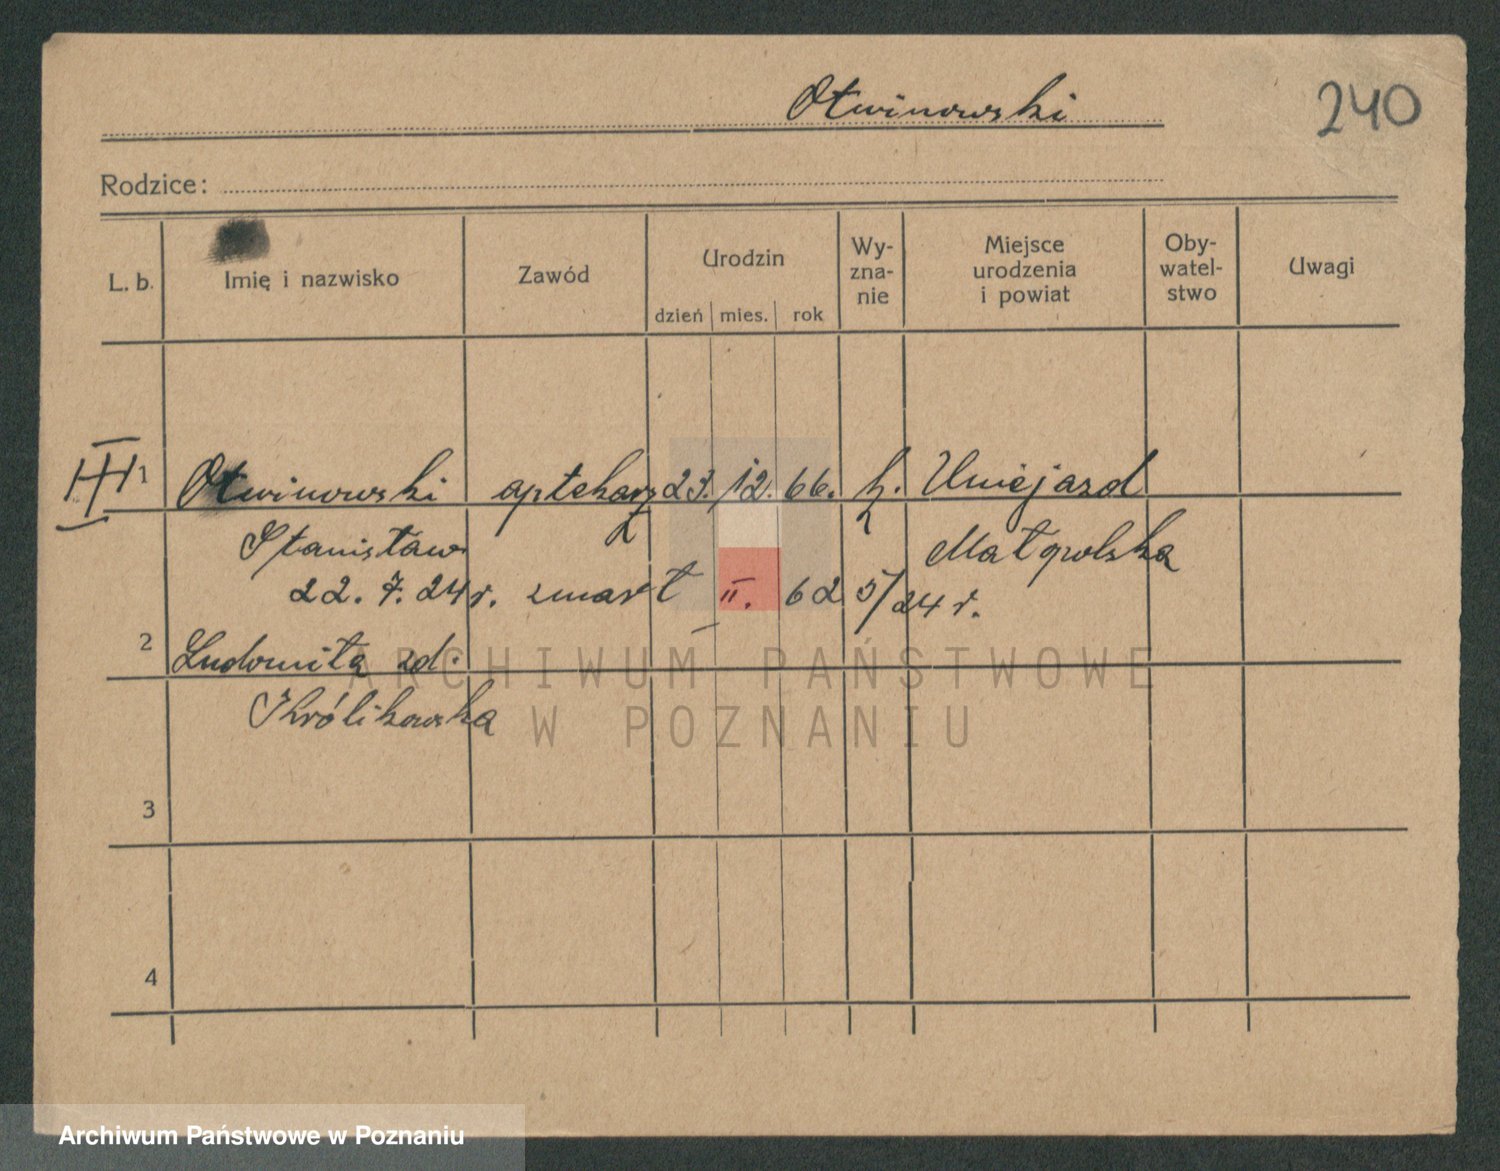 Otwinowski
240
Rodzice:
L. b. Imię i nazwisko Zawód Urodzin dzień mies. rok Wy-zna-nie Miejsce urodzenia i powiat Oby-watel-stwo Uwagi
III 1 Otwinowski aptekarz 23. 12. 66. k.
Stanisław Małopolska
22. 7. 24 r. zmarł II. 62 5/24 r.
2 Ludomiła zd.
Królikowska
3
4
ARCHIWUM PAŃSTWOWE
W POZNANIU
Archiwum Państwowe w Poznaniu